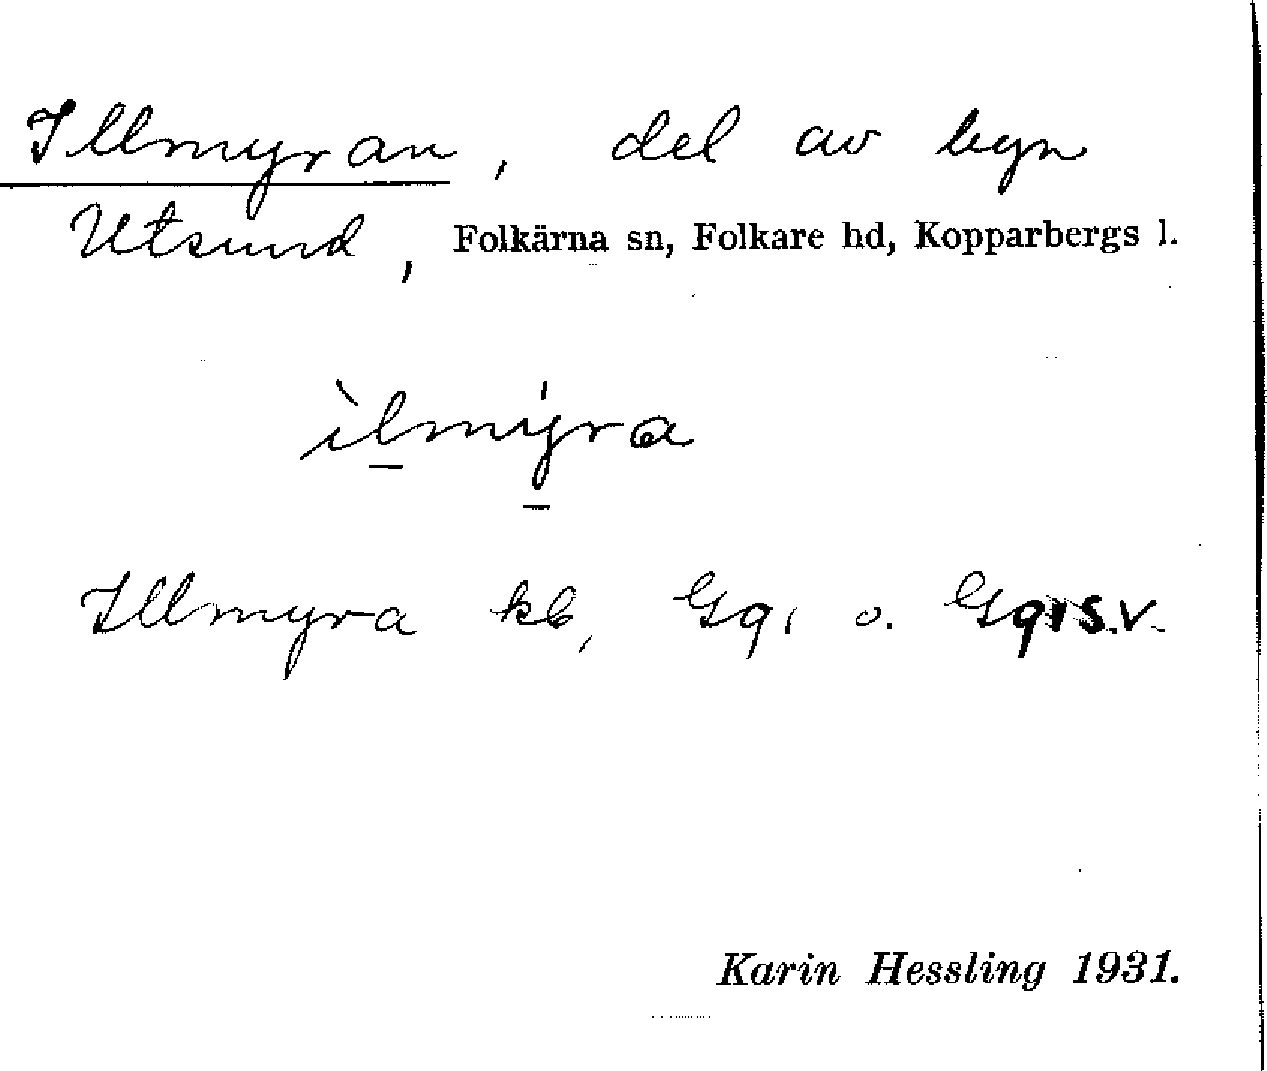 Illmyran, del av byn
Utsund, Folkärna sn, Folkare hd, Kopparbergs l.
ìlmýra
Illmyra kb, Gq, o. Gq, s.v.
Karin Hessling 1931.